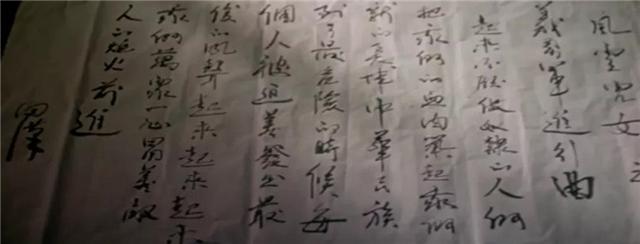 風雲兒女
義勇軍進行曲
起來不願做奴隸的人們
把我們的血肉築起我們
新的長城中華民族
到了最危險的時候每
個人被迫着發出最
後的吼聲起來起來起來
我們萬眾一心冒着敵
人的炮火前進
田漢